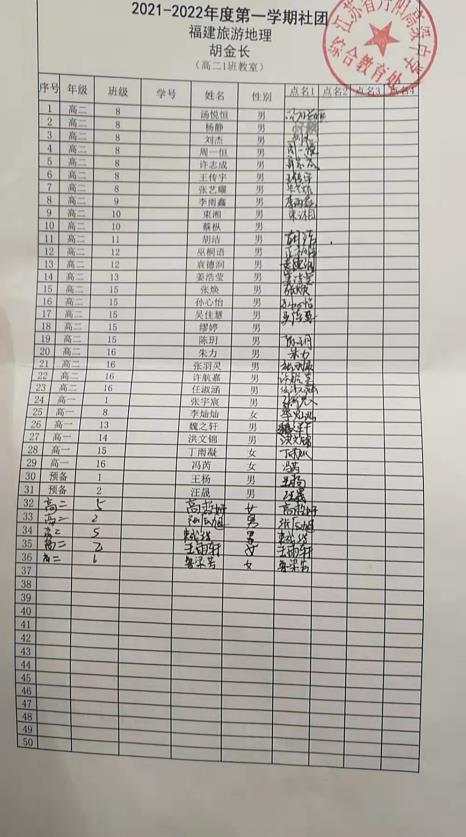 2021-2022年度第一学期社团
福建旅游地理
胡金长
(高二1班教室)
序号 年级 班级 学号 姓名 性别 点名1 点名2 点名3 点名4
1 高二 8 汤悦恒 男
2 高二 8 杨静 男
3 高二 8 刘杰 男
4 高二 8 周一恒 男 周一恒
5 高二 8 许志成 男 许志成
6 高二 8 王传宇 男 王传宇
7 高二 8 张艺耀 男
8 高二 9 李雨鑫 男 李雨鑫
9 高二 10 束湘 男
10 高二 10 蔡枞 男
11 高二 11 胡洁 男 胡洁
12 高二 12 巫桐语 男
13 高二 12 袁德润 男 袁德润
14 高二 13 姜浩莹 男 姜浩莹
15 高二 15 张焕 男 张焕
16 高二 15 孙心怡 男 孙心怡
17 高二 15 吴佳慧 男 吴佳慧
18 高二 15 缪婷 男
19 高二 15 陈玥 男 陈玥
20 高二 16 朱力 男 朱力
21 高二 16 张羽灵 男 张羽灵
22 高二 16 许航嘉 男 许航嘉
23 高二 16 任淑涵 男 任淑涵
24 高一 1 张宇宸 男 张宇宸
25 高一 8 李灿灿 女 李灿灿
26 高一 13 魏之轩 男 魏之轩
27 高一 14 洪文锦 男 洪文锦
28 高一 15 丁雨凝 女 丁雨凝
29 高一 16 冯芮 女 冯芮
30 预备 1 王杨 男 王杨
31 预备 2 汪晟 男 汪晟
32 高二 5 女
33 高二 2 男
34 高二 5 男
35 高二 2 王雨轩 女 王雨轩
36 高二 6 女
37
38
39
40
41
42
43
44
45
46
47
48
49
50